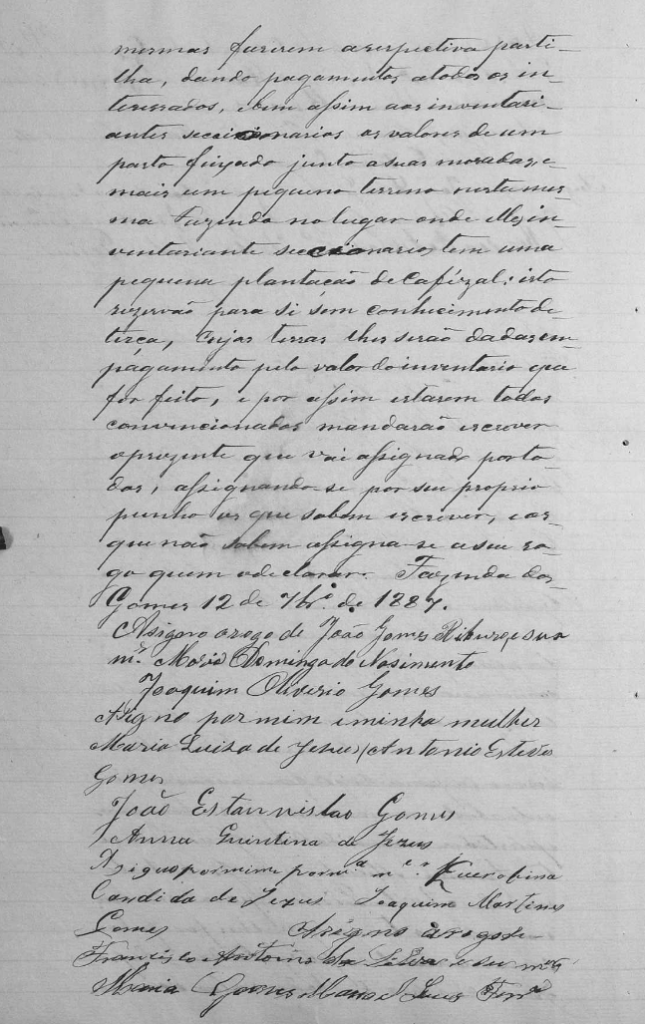 mesmas fazerem a respectiva parti-
lha, dando pagamentos a todos os in-
teressados, e bem assim aos inventari-
antes seccionarios os valores de um
pasto feixado junto a suas moradas, e
mais um pequeno terreno nesta mes-
ma Fazenda no lugar onde elles in-
ventariante seccionario, tem uma
pequena plantação de Cafézal; isto
rezervão para si sem conhecimento de
terça, cujas terras lhes serão dadas em
págamento pelo valor do inventario que
for feito, e por assim estarem todos
convencionados mandarão escrever
o prezente que vai assignado por to-
dos, assignando-se por seu proprio
punho os que sabem escrever, e os
que não sabem assigna-se a seu ro-
go quem o declarar. Fazenda dos
Gomes 12 de 7br.º de 1887.
Asigno arogo de João Gomes e sua
m.er Maria Dominga do Nasimento
Joaquim Oliverio Gomes
Asigno por mim e minha mulher
Maria Luiza de Jezus Antonio Esteves
Gomes
João Estanislao Gomes
Anna Quintina de Jezus
Asigno por mim e por m.ª m.er
Candida de Jezus Joaquim Martins
Gomes Asigno arogo de
Francisco Antonio da Silva e su m.er
Maria Gomes Manoel Luis Ferr.ª